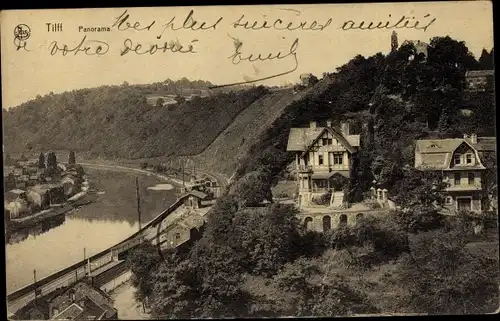 Tilff Panorama.
les plus sincères amitiés
de votre dévoué Emile